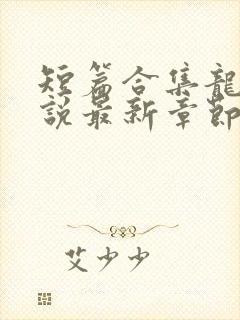 短篇合集龍
說最新章節
艾少少